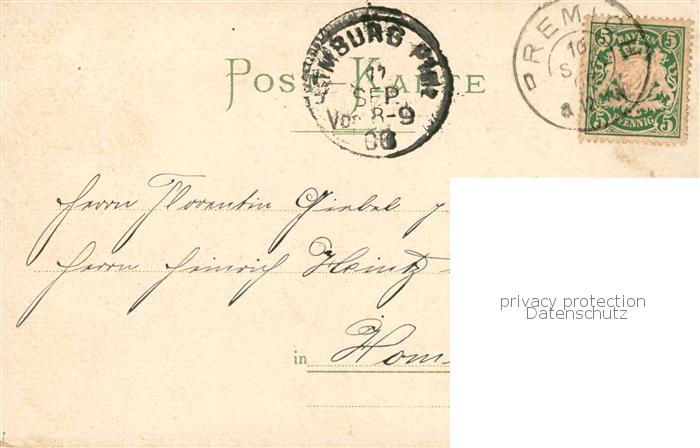 POST-KARTE
HOMBURG Pfalz
11
SEP.
Vor. 8-9
00
BREM
10
S
5 BAYERN 5
5 PFENNIG 5
Herrn Florentin Giebel
Herrn Heinrich Heintz
in Hom
privacy protection
Datenschutz